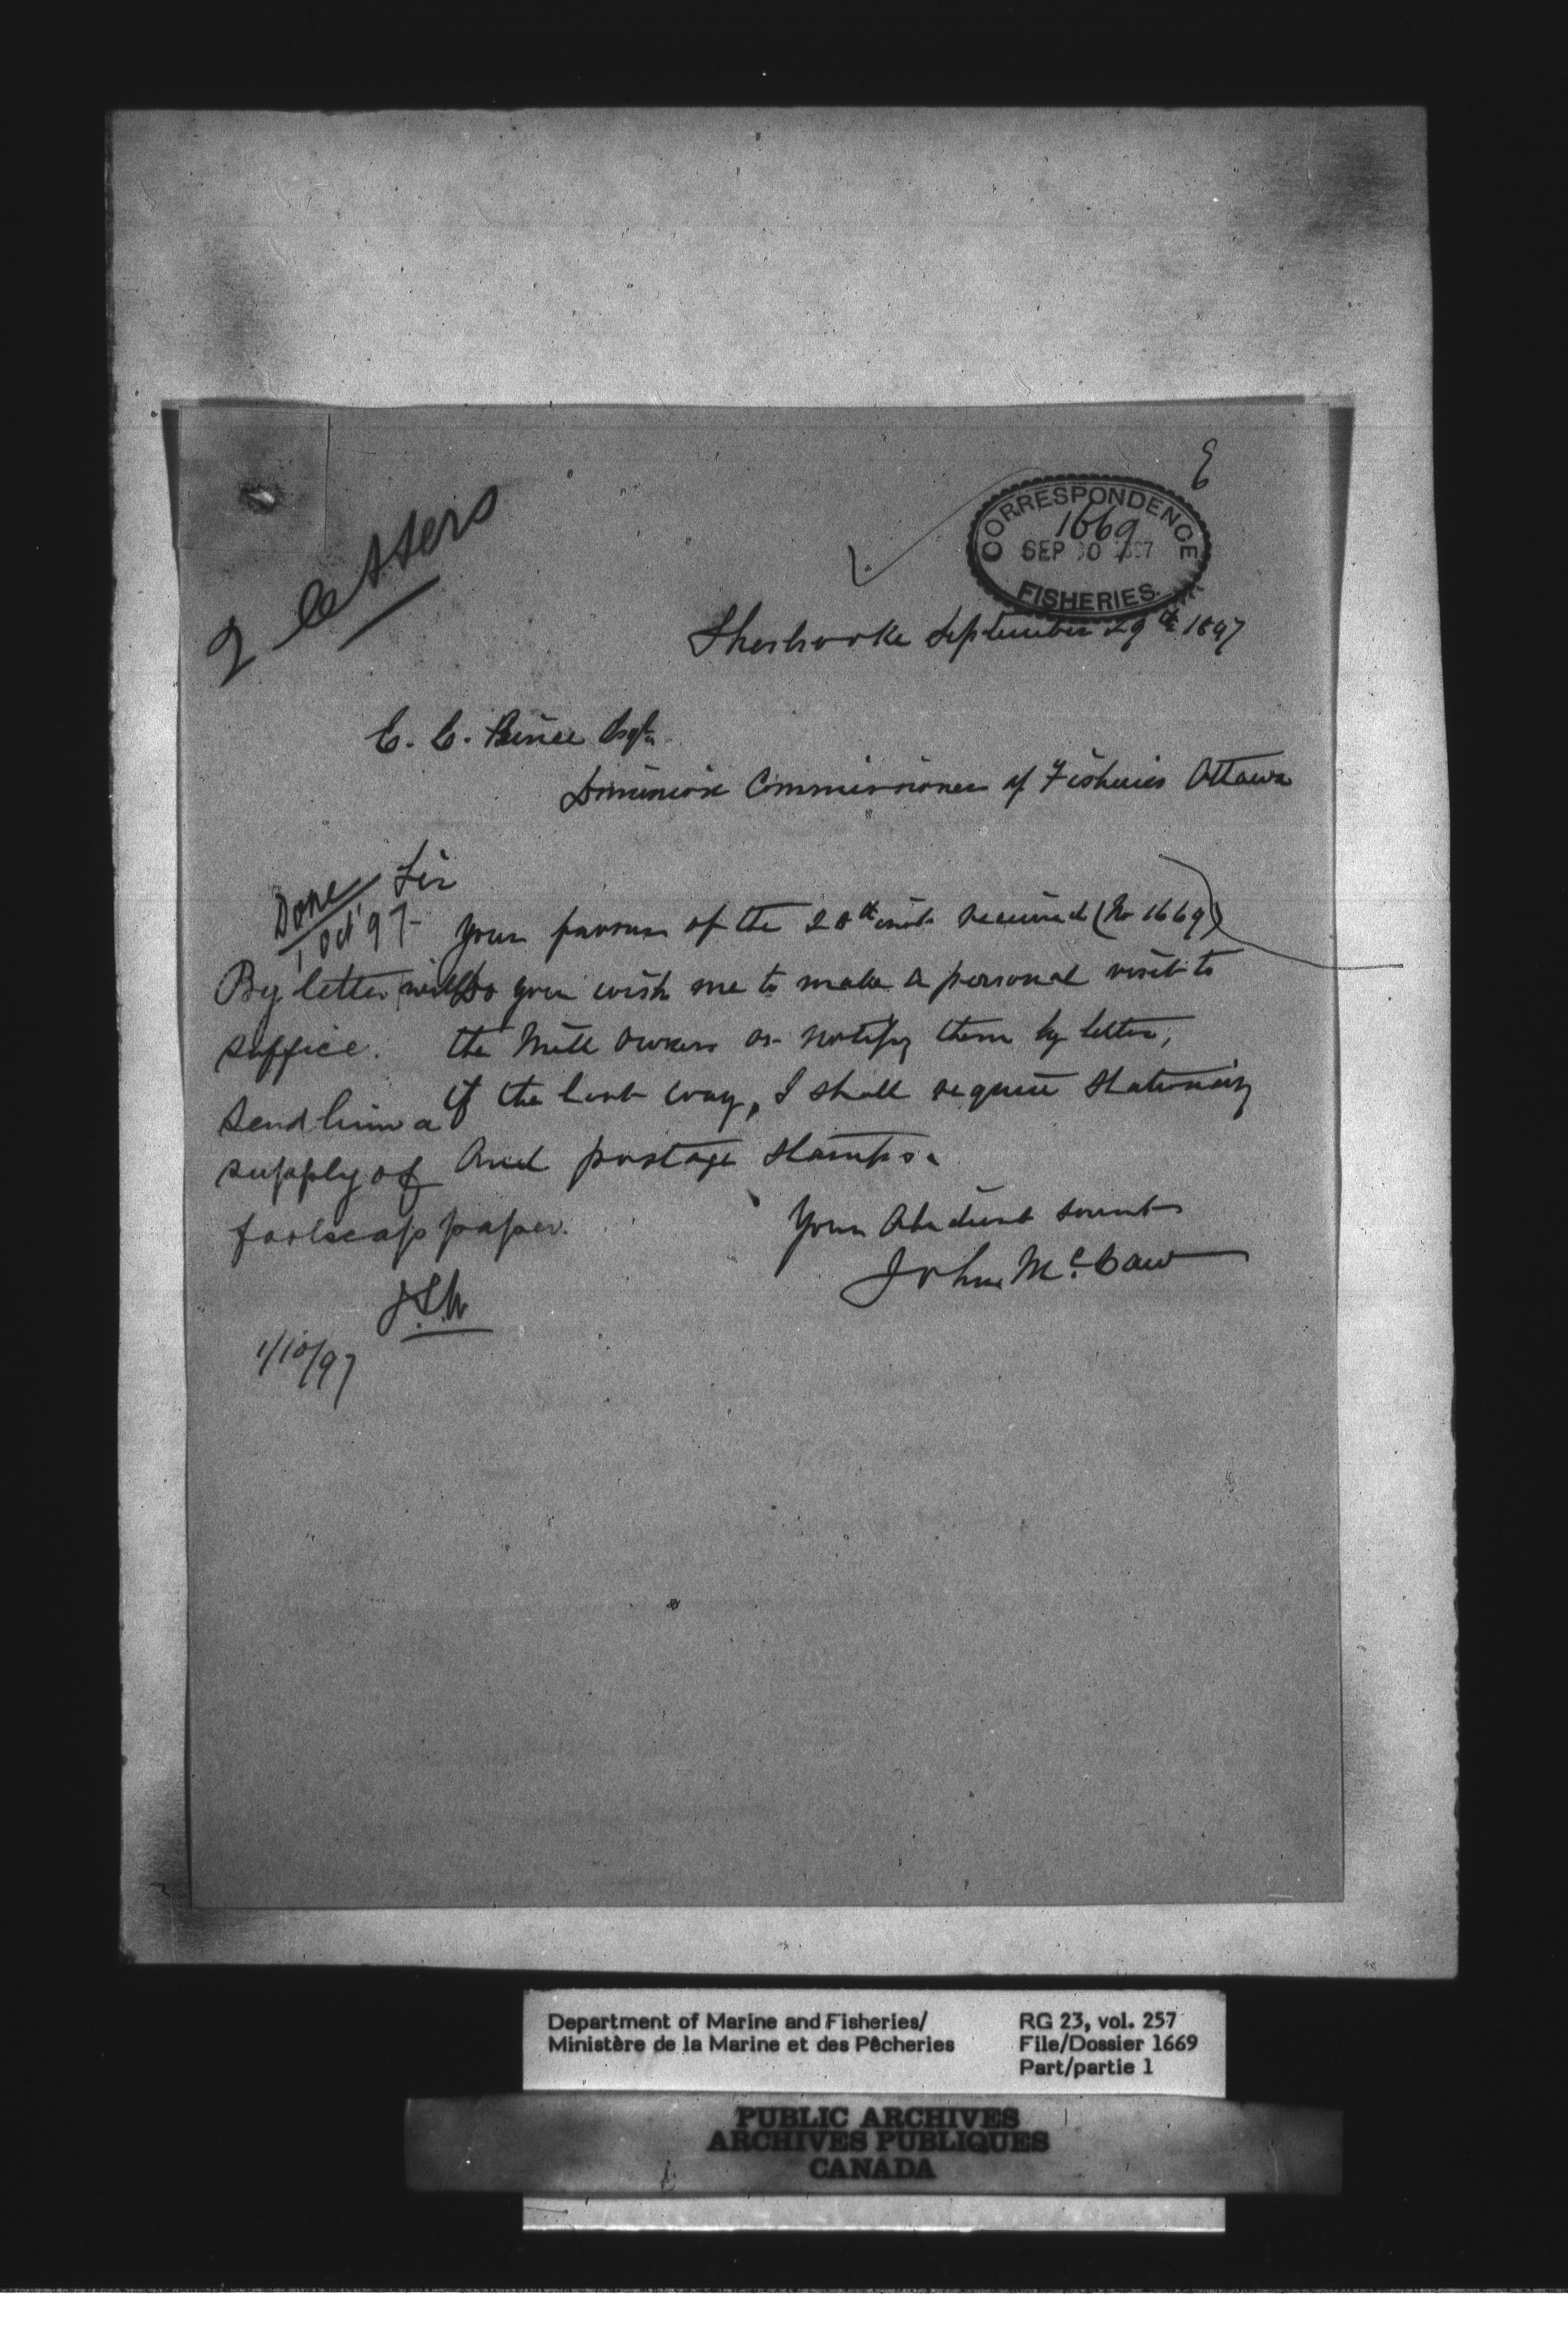 2 letters
E
CORRESPONDENCE
1669
SEP 30 1897
FISHERIES.
Sherbrooke September 29th 1897
E. E. Prince Esqr
Dominion Commissioner of Fisheries Ottawa
Sir
Your favour of the 28th inst received (No 1669)
Do you wish me to make a personal visit to
the Mill owners or notify them by letter,
if the last way, I shall require Stationary
And postage Stamps.
Your Obedient servant
John McCaw
Done
1 Oct 97
By letter will
suffice.
Send him a
supply of
foolscap paper.
1/10/97
Department of Marine and Fisheries/
Ministère de la Marine et des Pêcheries
RG 23, vol. 257
File/Dossier 1669
Part/partie 1
PUBLIC ARCHIVES
ARCHIVES PUBLIQUES
CANADA